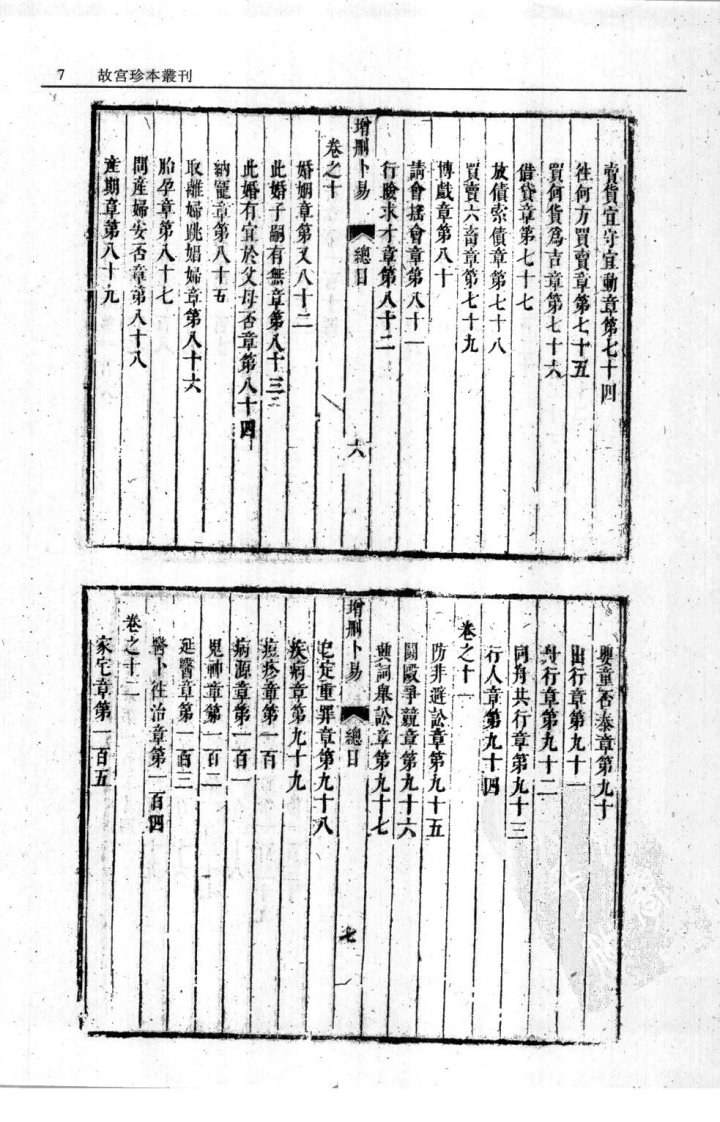 7 故宮珍本叢刊
賣貨宜守宜動章第七十四
往何方買賣章第七十五
買何貨爲吉章第七十六
借貸章第七十七
放債索債章第七十八
買賣六畜章第七十九
博戲章第八十
請會搖會章第八十一
行險求才章第八十二
增刪卜易 總目 六
卷之十
婚姻章第又八十二
此婚子嗣有無章第八十三
此婚有宜於父母否章第八十四
納寵章第八十五
取離婦跳娼婦章第八十六
胎孕章第八十七
問産婦安否章第八十八
産期章第八十九
嬰童否泰章第九十
出行章第九十一
舟行章第九十二
同舟共行章第九十三
行人章第九十四
卷之十一
防非避訟章第九十五
鬪毆爭競章第九十六
興詞舉訟章第九十七
增刪卜易 總目 七
已定重罪章第九十八
疾病章第九十九
痘疹章第一百
病源章第一百一
鬼神章第一百二
延醫章第一百三
醫卜往治章第一百四
卷之十二
家宅章第一百五